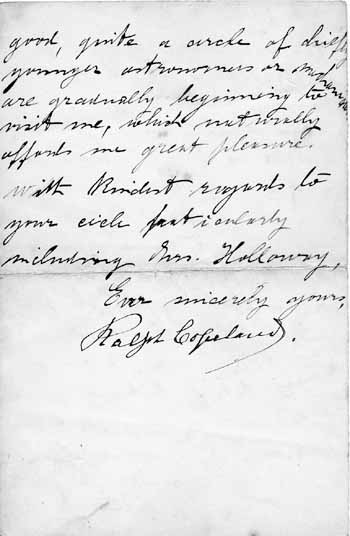 good, quite a circle of
younger astronomers or
are gradually beginning to
visit me, which naturally
affords me great pleasure.
With kindest regards to
your circle particularly
including Mrs. Holloway,
Ever sincerely yours,
Ralph Copeland.